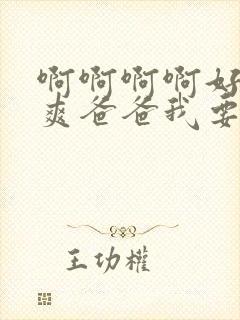 啊啊啊啊好
爽爸爸我要
王功權